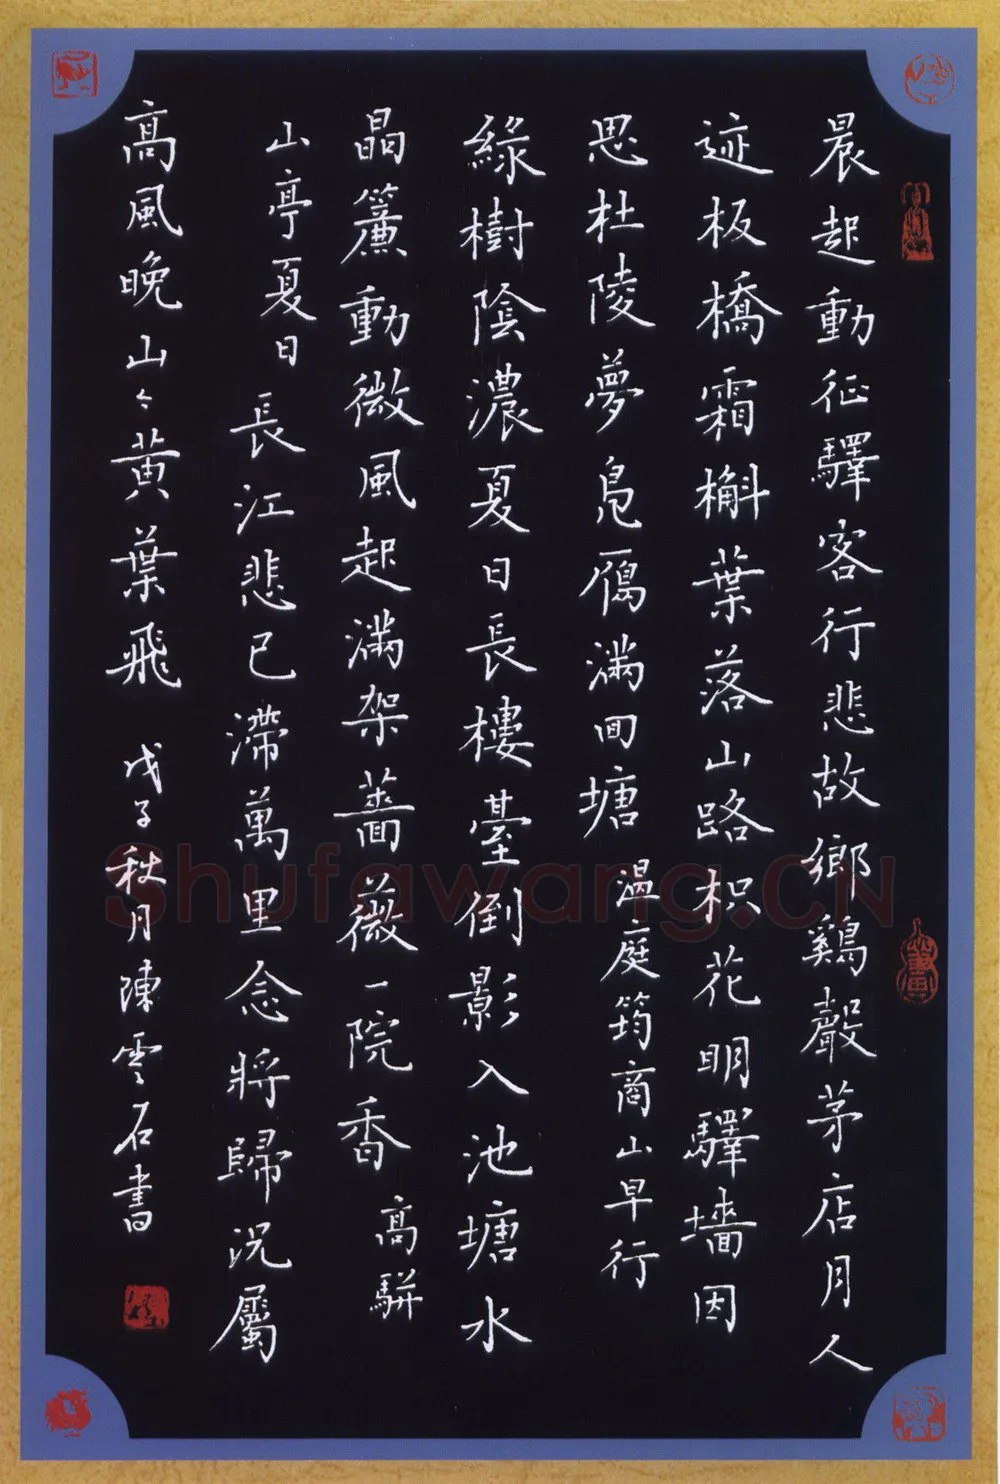 晨起動征驛客行悲故鄉鷄聲茅店月人
迹板橋霜槲葉落山路枳花明驛墻因
思杜陵夢鳧雁滿回塘 温庭筠商山早行
綠樹陰濃夏日長樓臺倒影入池塘水
晶簾動微風起滿架薔薇一院香 高駢
山亭夏日 長江悲已滯萬里念將歸況屬
高風晚山々黄葉飛 戊子秋月陳雲石書
Shufawang.CN